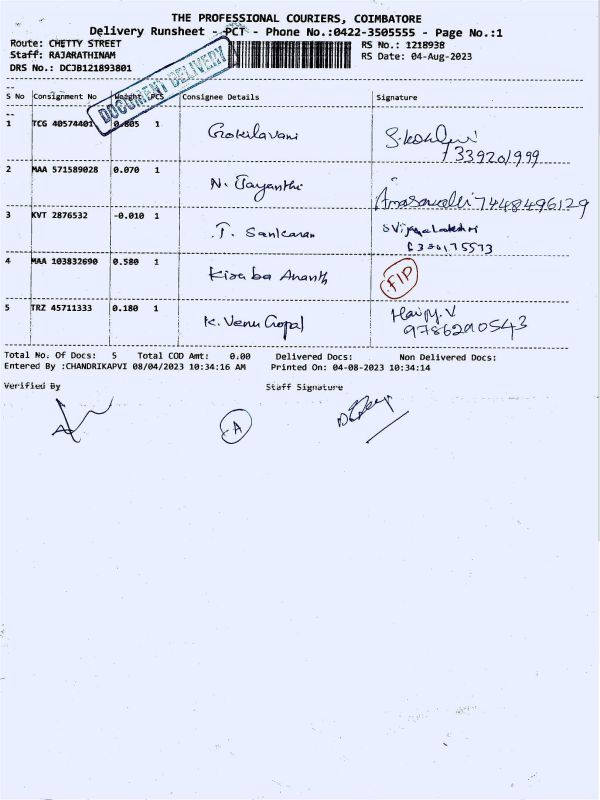 THE PROFESSIONAL COURIERS, COIMBATORE
Delivery Runsheet - PCT - Phone No.:0422-3505555 - Page No.:1
Route: CHETTY STREET RS No.: 1218938
Staff: RAJARATHINAM RS Date: 04-Aug-2023
DRS No.: DCJB121893801
DOCUMENT DELIVERY
S No Consignment No Weight PCS Consignee Details Signature
1 TCG 40574401 0.805 1 Gokilavani
339201999
2 MAA 571589028 0.070 1 N. Jayanthi
7448496129
3 KVT 2876532 -0.010 1 T. Sankaran S Vijayalakshmi
4 MAA 103832690 0.580 1 Kisaba Ananth FIP
5 TRZ 45711333 0.180 1 K. Venu Gopal
9786290543
Total No. Of Docs: 5 Total COD Amt: 0.00 Delivered Docs: Non Delivered Docs:
Entered By :CHANDRIKAPVI 08/04/2023 10:34:16 AM Printed On: 04-08-2023 10:34:14
Verified By Staff Signature
A